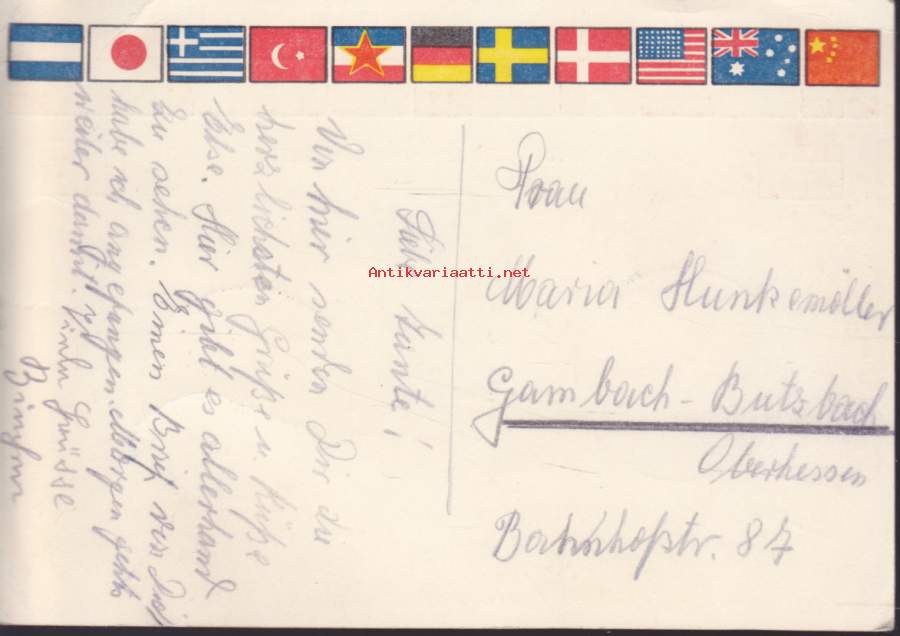 Liebe Tante!
Von hier senden Dir die
herzlichsten Grüße u. Küße
Else. Hier gibt es allerhand
zu sehen. Einen Brief von Dir
habe ich angefangen. Morgen geht
weiter damit. Viele Grüsse
Frau
Maria Hunkemöller
Gambach-Butzbach
Oberhessen
Bahnhofstr. 87
Antikvariaatti.net